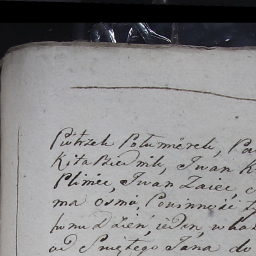 Piotrzek Połumierek, Pa
Kita Biernik, Iwan K
Plimec, Iwan Zaiec, c
ma osmo, Powinność t
hemu Dzień, ieden, w ka
od Swiętego Iana do